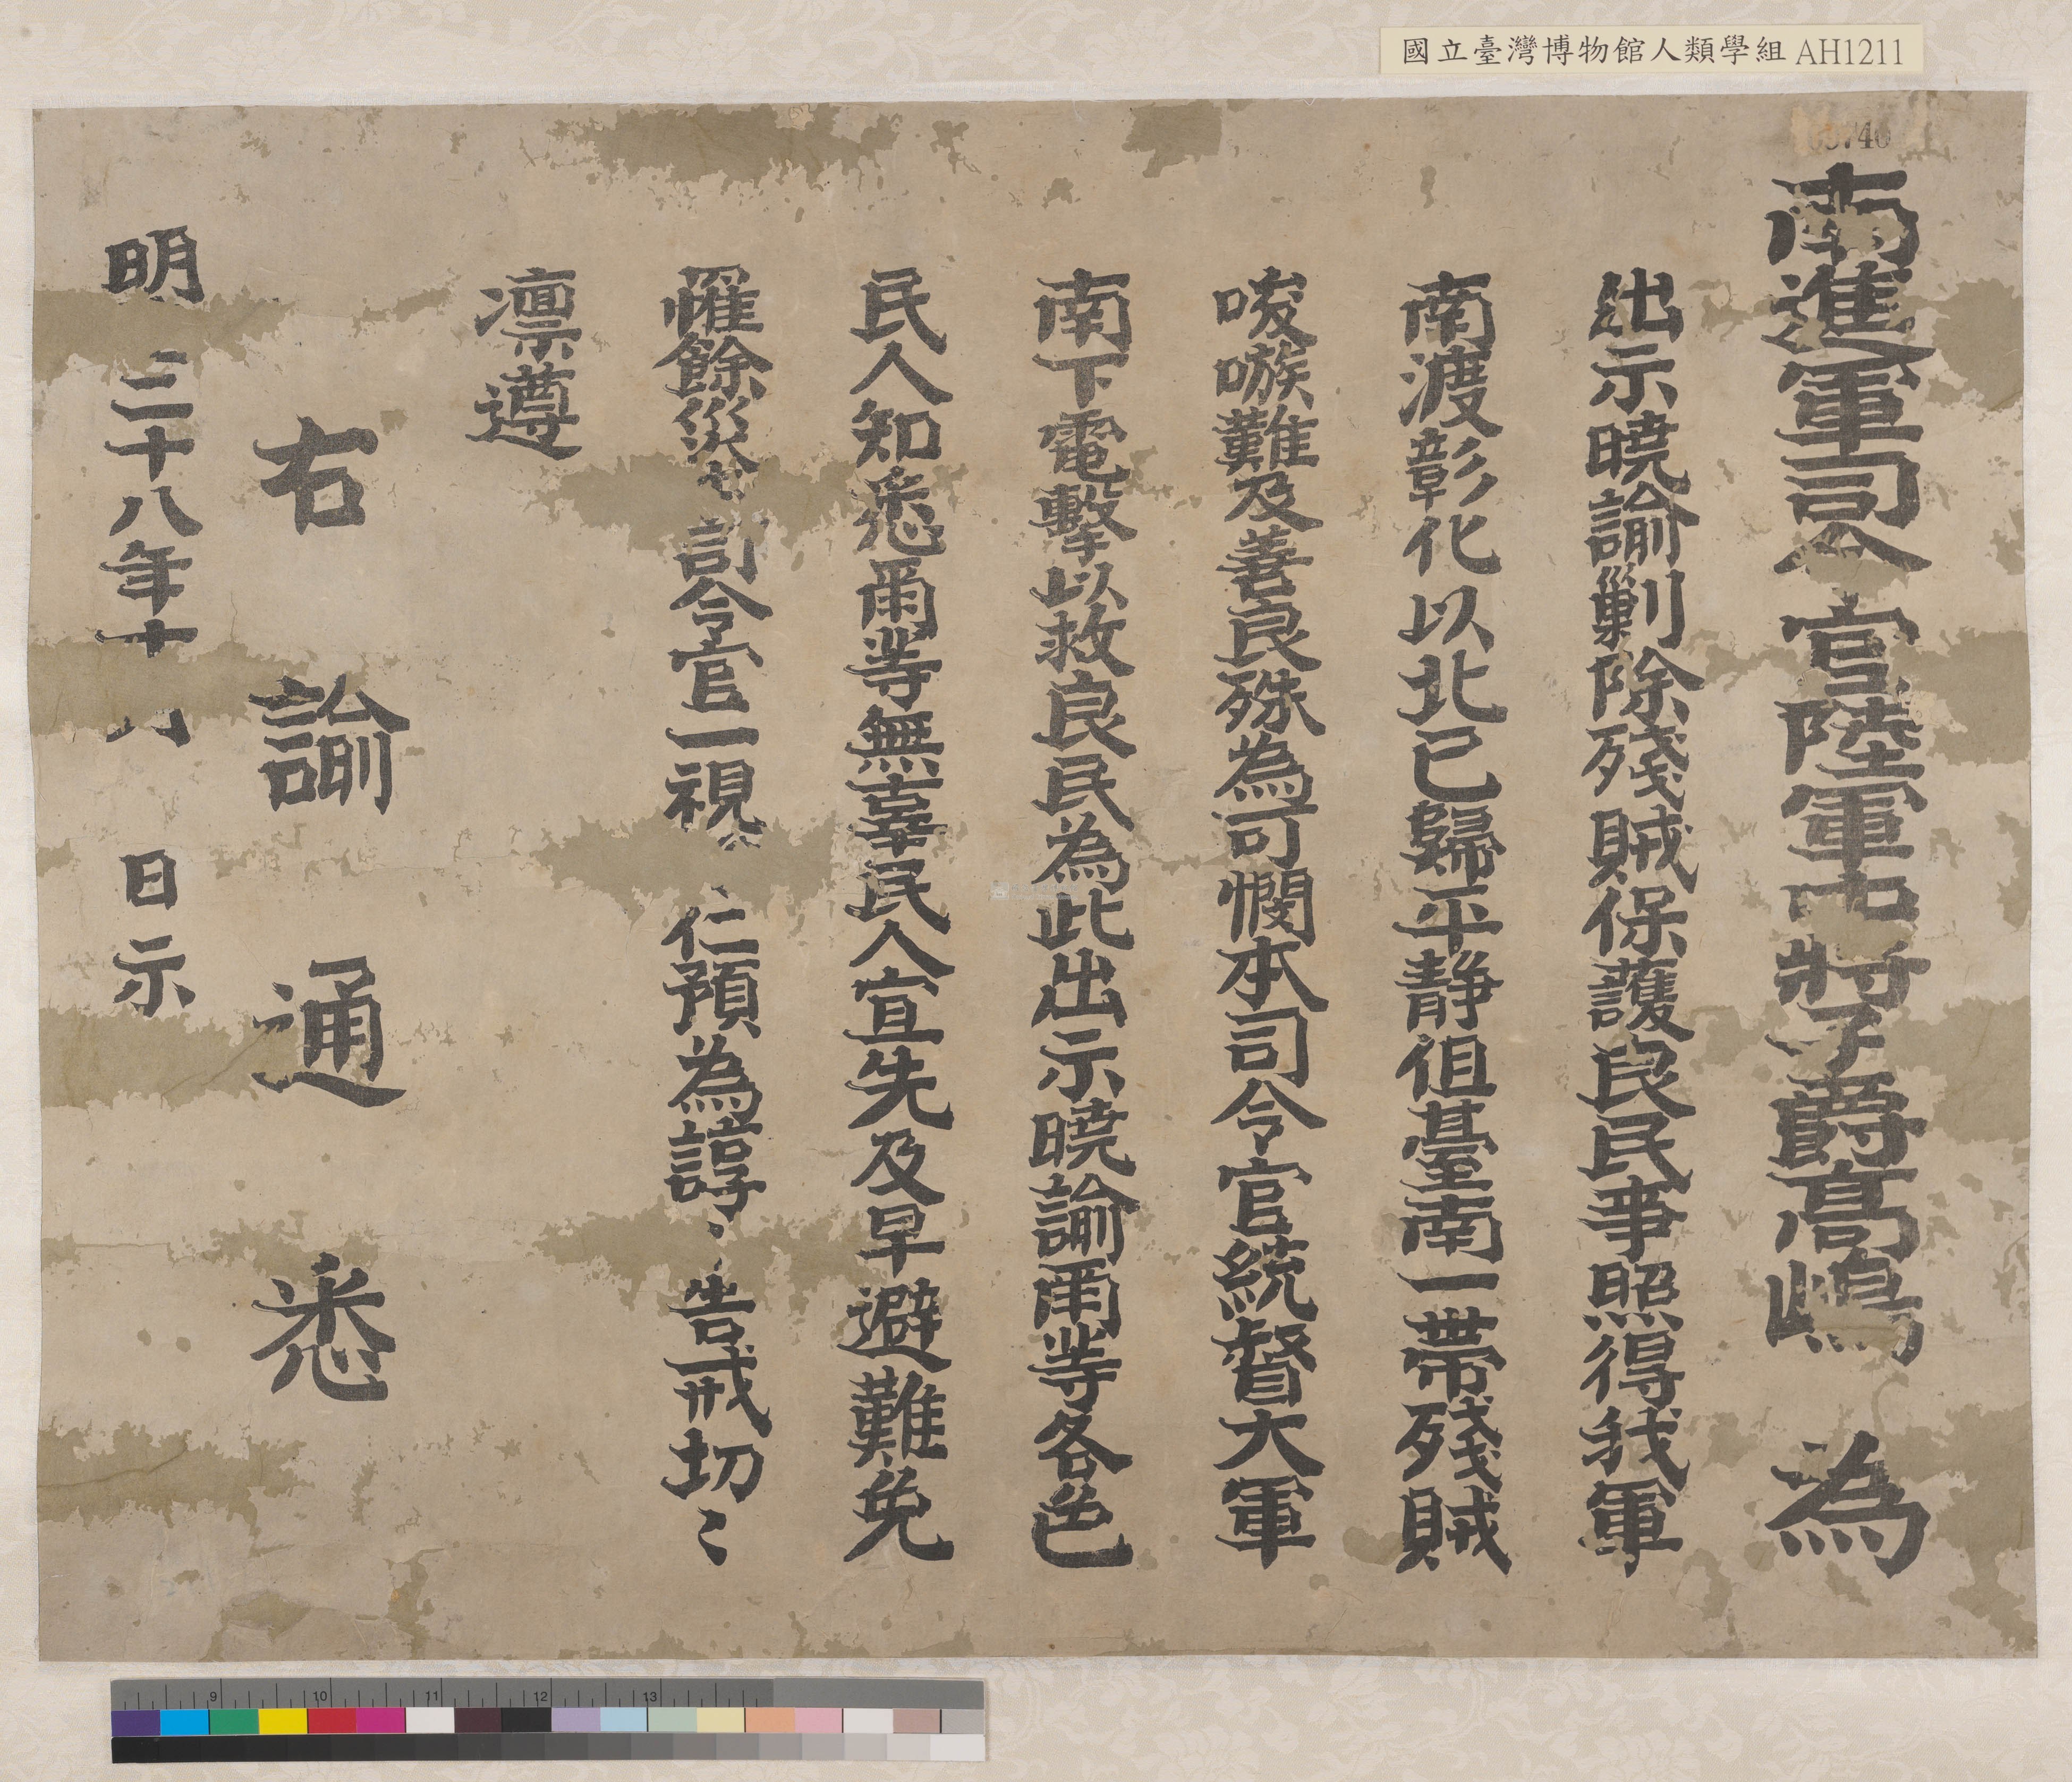 國立臺灣博物館人類學組 AH1211
南進軍司令官陸軍中將子爵髙嶋為
出示曉諭剿除殘賊保護良民事照得我軍
南渡彰化以北已歸平靜但臺南一帶殘賊
唆嗾難及善良殊為可憫本司令官統督大軍
南下電擊以救良民為此出示曉諭爾等各色
民人知悉爾等無辜民人宜先及早避難免
罹餘災 訓令官一視 仁預為諄〻告戒切〻
凛遵
右諭通悉
明 二十八年十月 日示
9 10 11 12 13